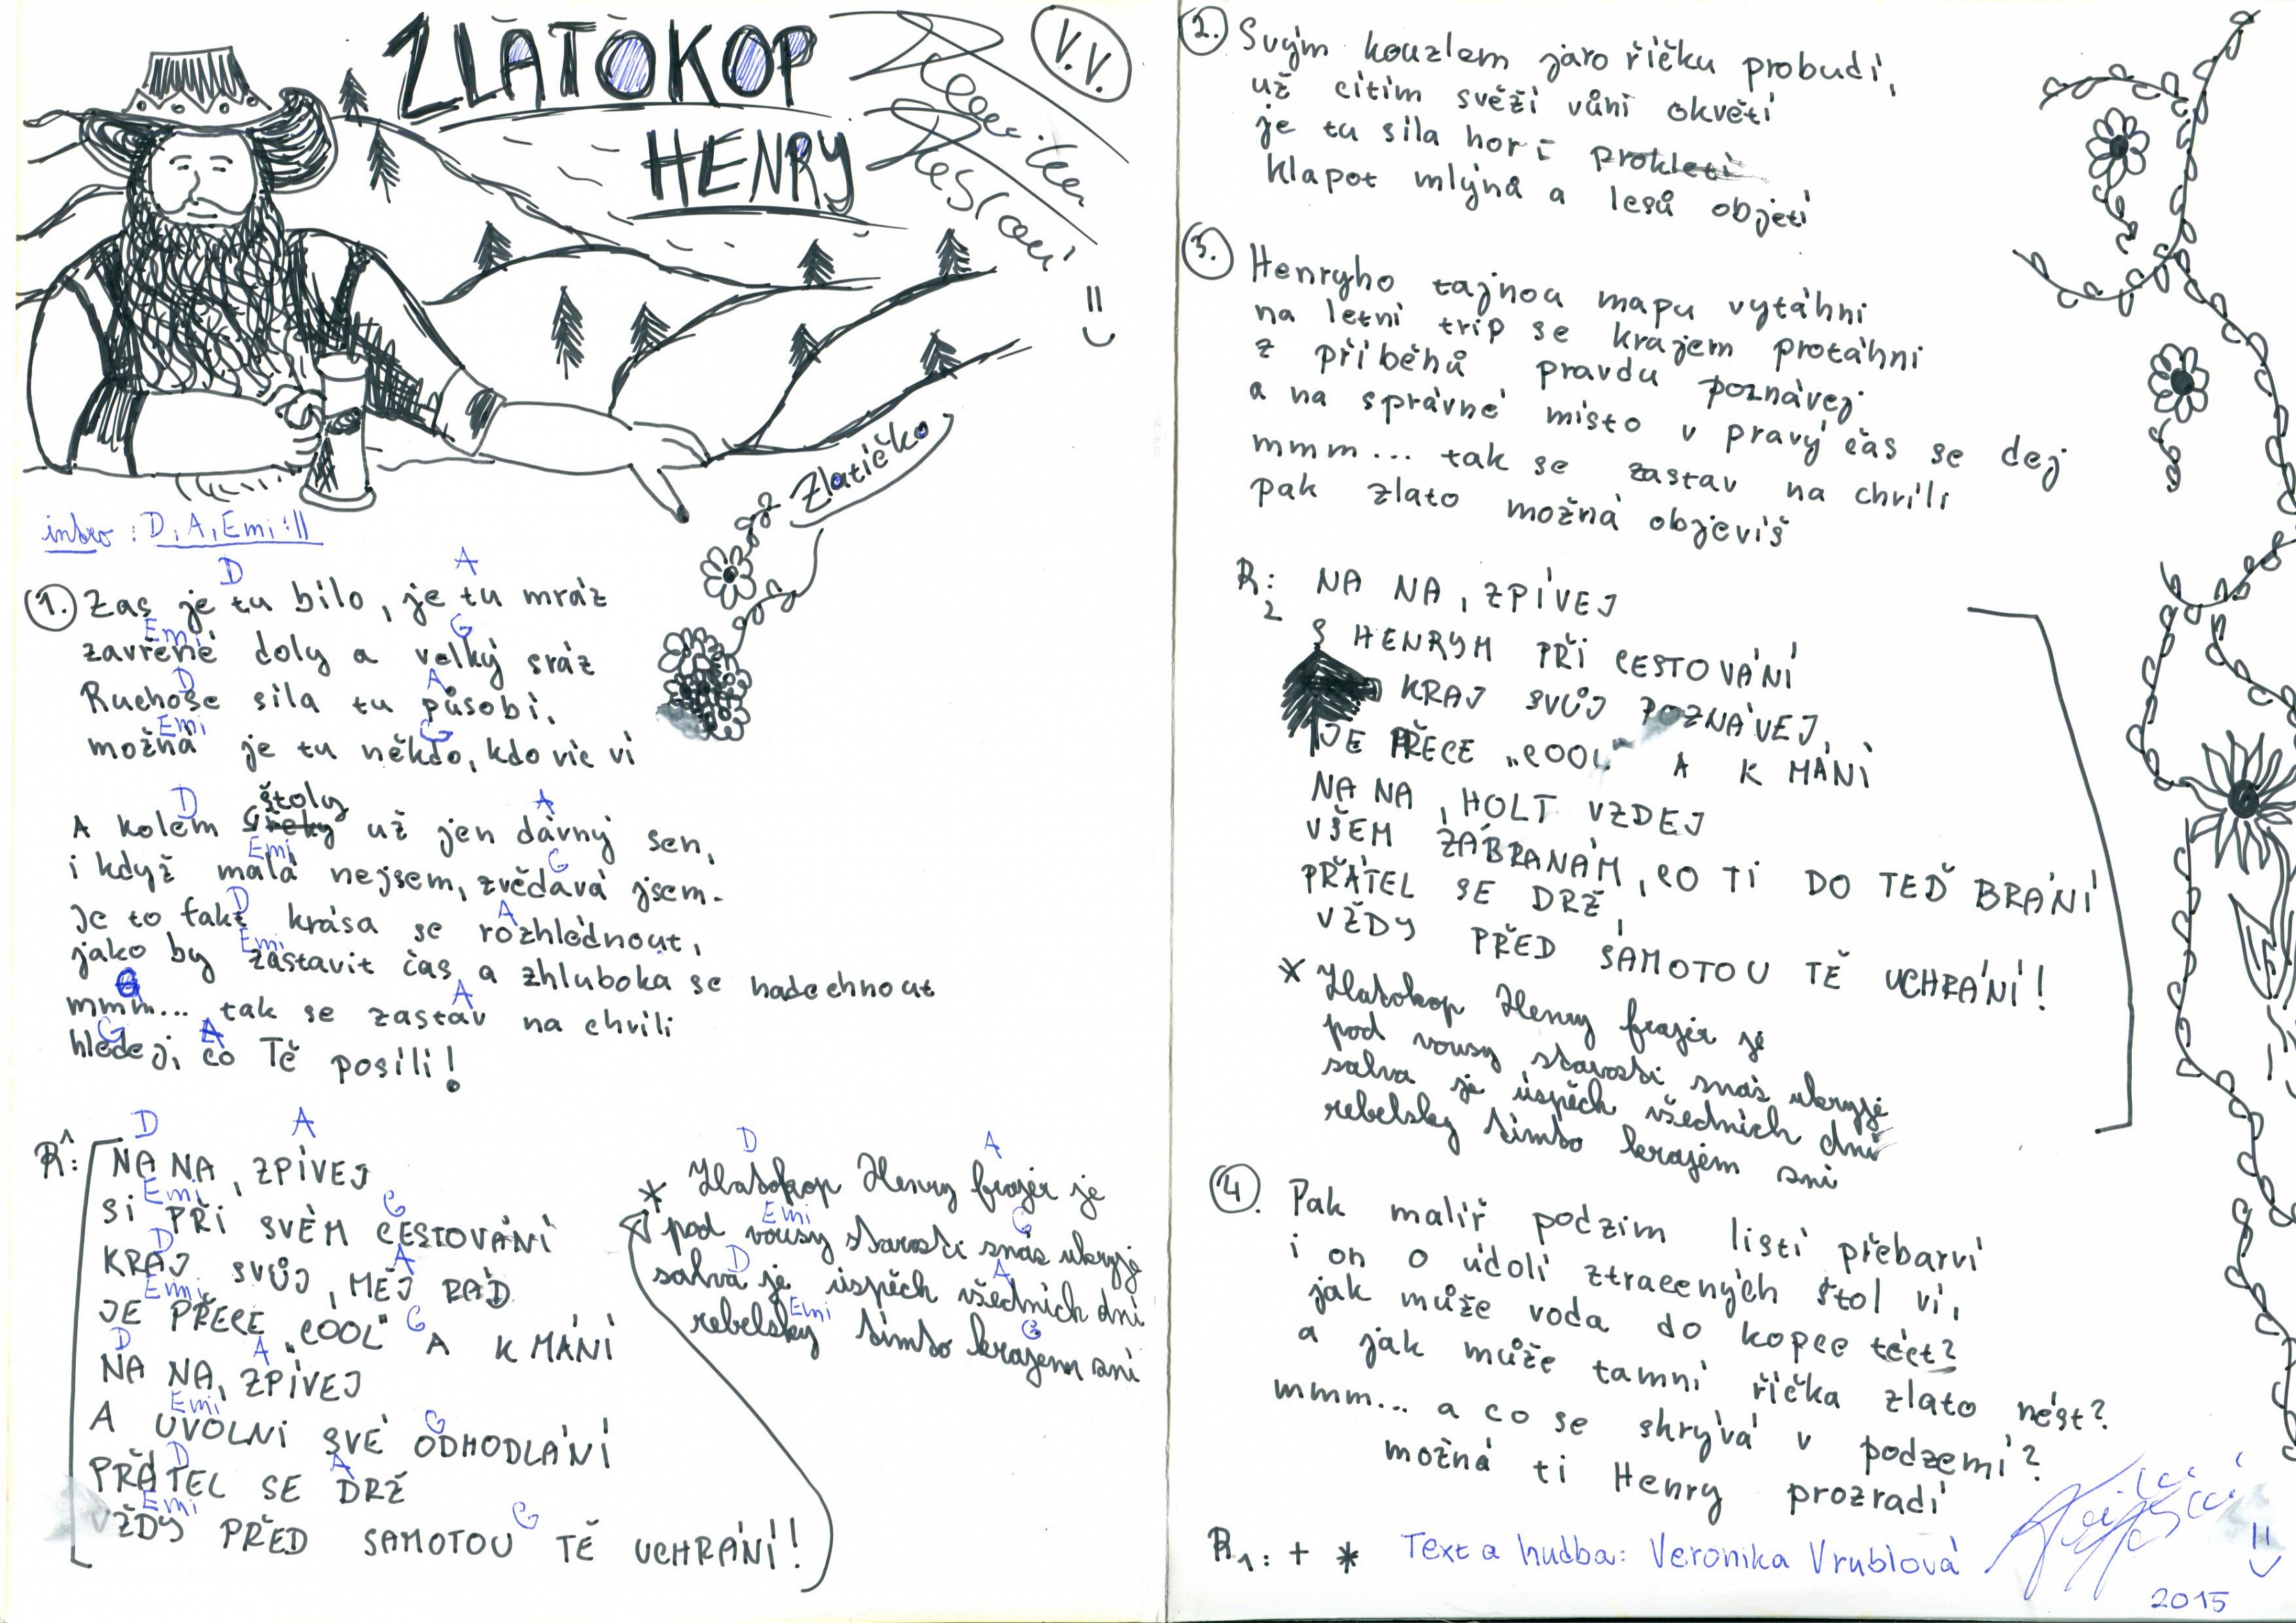 ZLATOKOP
HENRY
V.V.
Zlatíčko
intro : D, A, Emi :||
D A
1. Zas je tu bílo, je tu mráz
Emi G
zavřené doly a velký sráz
D A
Ruchoše síla tu působí,
Emi G
možná je tu někdo, kdo víc ví
D štoly A
A kolem už jen dávný sen,
Emi G
i když malá nejsem, zvědavá jsem.
D A
Je to fakt krása se rozhlédnout,
Emi
jako by zastavit čas a zhluboka se nadechnout
G A
mmm... tak se zastav na chvíli
G A
hledej, co Tě posílí!
D A
R1: NA NA, ZPÍVEJ
Emi G
SI PŘI SVÉM CESTOVÁNÍ
D A
KRAJ SVŮJ, MĚJ RÁD
Emi G
JE PŘECE „COOL“ A K MÁNÍ
D A
NA NA, ZPÍVEJ
Emi G
A UVOLNI SVÉ ODHODLÁNÍ
D A
PŘÁTEL SE DRŽ
Emi G
VŽDY PŘED SAMOTOU TĚ UCHRÁNÍ!
D A
* Zlatokop Henry frajer je
Emi G
pod vousy starosti snáz ukryje
D A
salva je úspěch všedních dní
Emi G
rebelsky tímto krajem zní
2. Svým kouzlem jaro říčku probudí,
už cítím svěží vůni okvětí
je tu síla hor i prokletí
klapot mlýnů a lesů objetí
3. Henryho tajnou mapu vytáhni
na letní trip se krajem protáhni
z příběhů pravdu poznávej
a na správné místo v pravý čas se dej
mmm... tak se zastav na chvíli
pak zlato možná objevíš
R2: NA NA, ZPÍVEJ
S HENRYM PŘI CESTOVÁNÍ
KRAJ SVŮJ POZNÁVEJ,
JE PŘECE „COOL“ A K MÁNÍ
NA NA, HOLT VZDEJ
VŠEM ZÁBRANÁM, CO TI DO TEĎ BRÁNÍ
PŘÁTEL SE DRŽ,
VŽDY PŘED SAMOTOU TĚ UCHRÁNÍ!
* Zlatokop Henry frajer je
pod vousy starosti snáz ukryje
salva je úspěch všedních dní
rebelsky tímto krajem zní
4. Pak malíř podzim listí přebarví
i on o údolí ztracených štol ví,
jak může voda do kopce téct?
a jak může tamní říčka zlato nést?
mmm... a co se skrývá v podzemí?
možná ti Henry prozradí
R1: + * Text a hudba: Veronika Vrublová
2015